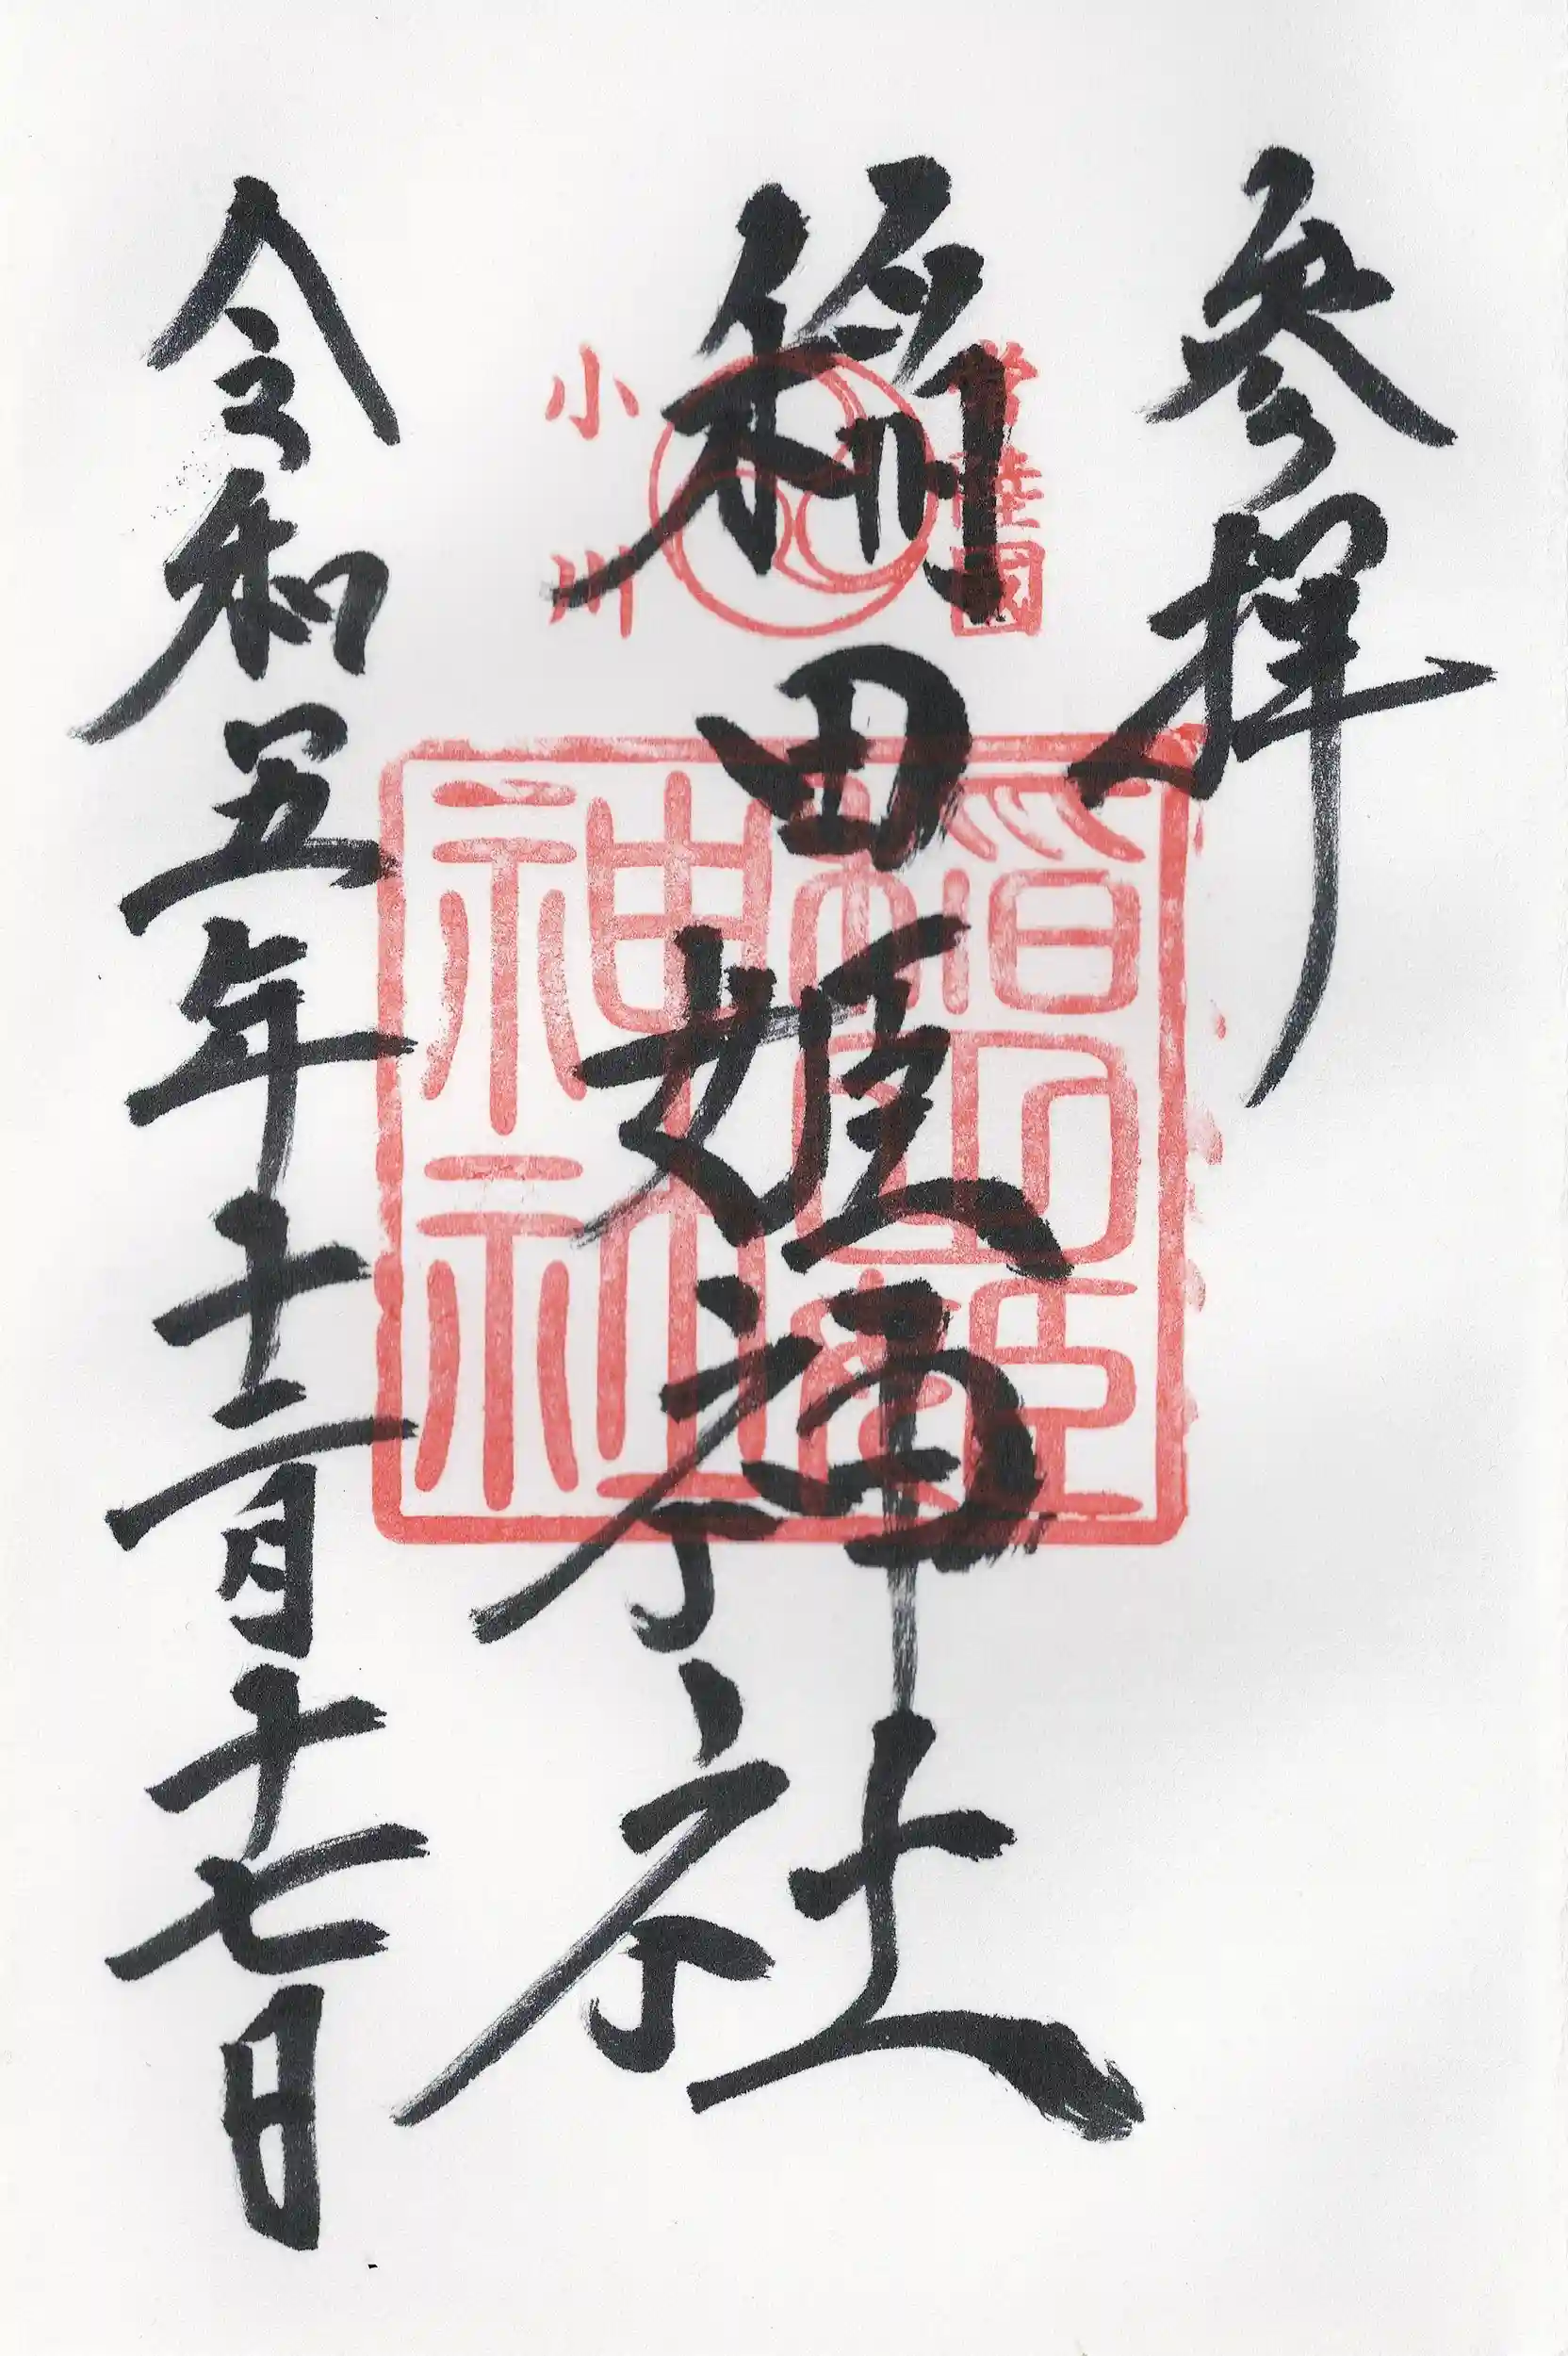 参拝
常陸國
稲田姫神社
小川
稻田姫神社
令和五年十二月十七日